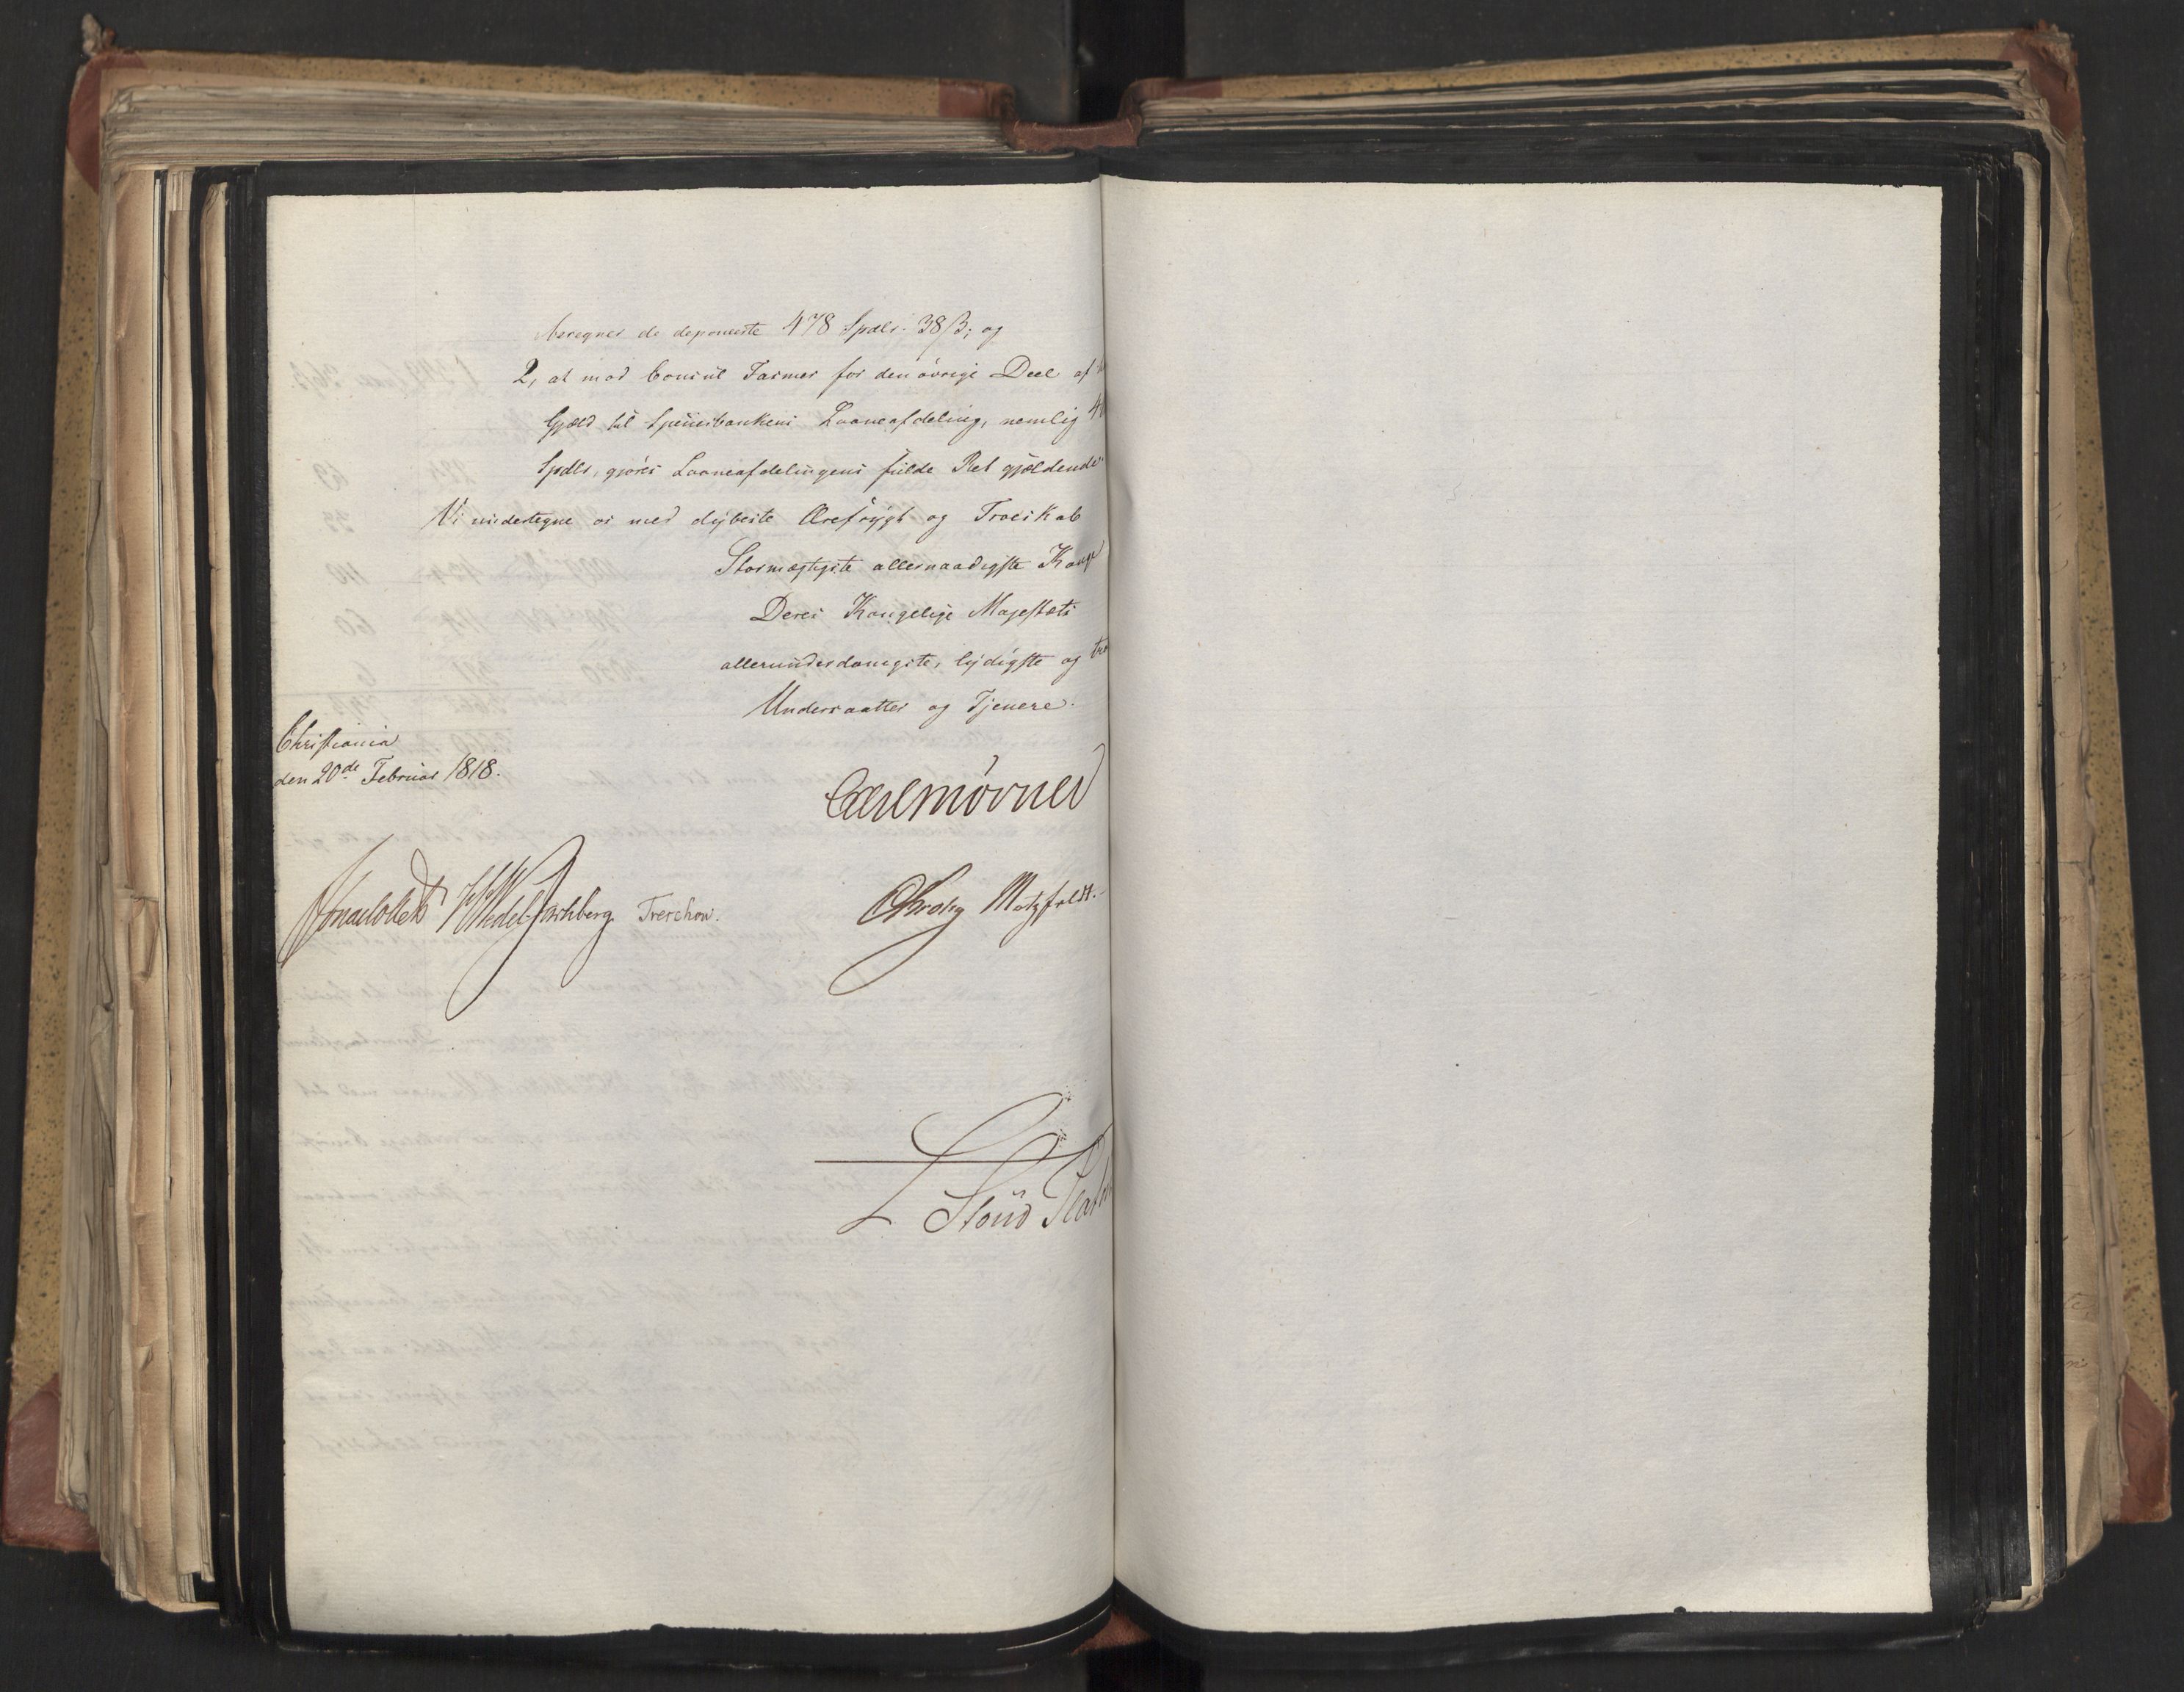 beregnes de deponeerte 478 Spdlr. 38 ß; og
2, at mod Consul Farmer for den øvrige Deel af
Gjæld til Speciesbankens Laaneafdeling, nemlig
Spdlr, gjøres Laaneafdelingens fulde Ret gjældende
Vi undertegne os med dybeste Ærefrygt og Troeskab
Stormægtigste allernaadigste Konge
Deres Kongelige Majestæts
allerunderdanigste, lydigste og
Undersaatter og Tjenere.
Christiania
den 20de Februar 1818.
Carl Mörner
JCollett HWedel Jarlsberg Treschow. CKrohg Motzfeldt.
L Stoud Platou